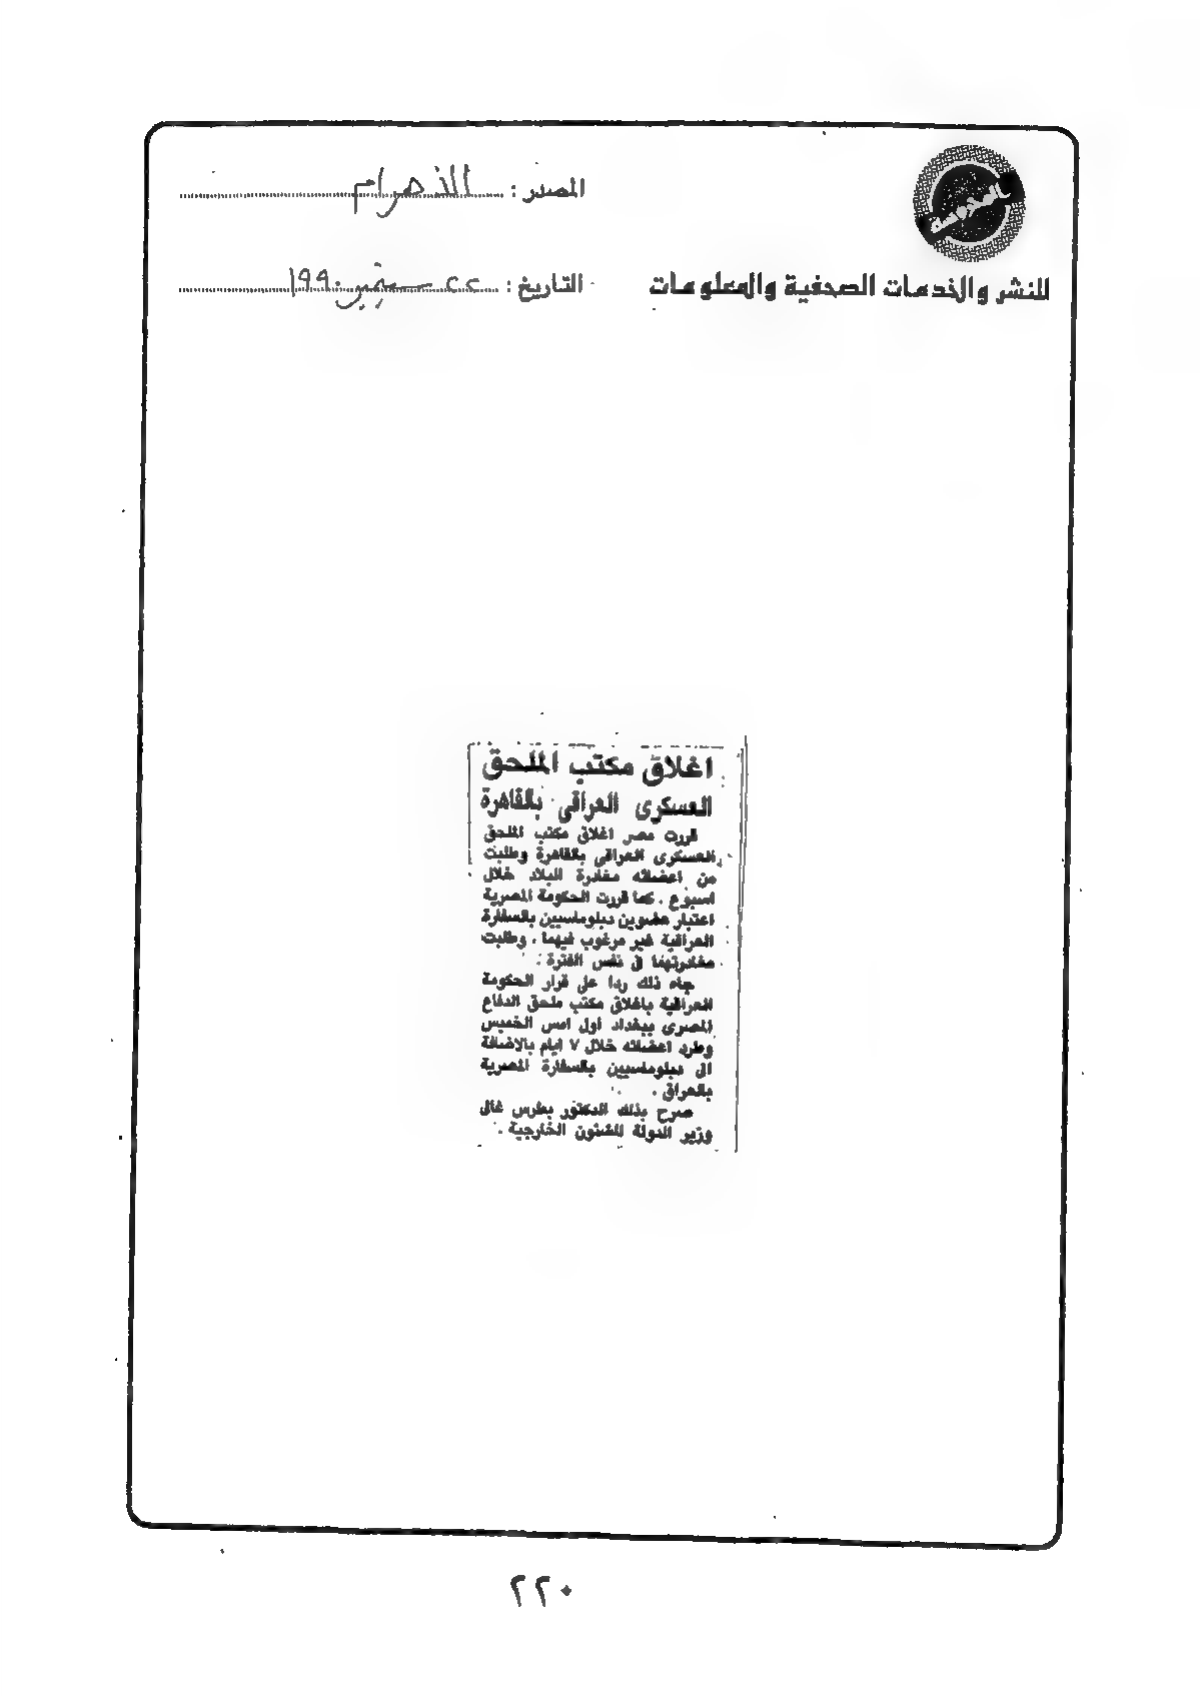 المصدر : الأهرام
للنشر والخدمات الصحفية والمعلومات
التاريخ : ٢٢ سبتمبر ١٩٩٠
اغلاق مكتب الملحق
العسكرى العراقى بالقاهرة
قررت مصر اغلاق مكتب الملحق
العسكرى العراقى بالقاهرة وطلبت
من اعضائه مغادرة البلاد خلال
اسبوع . كما قررت الحكومة المصرية
اعتبار عضوين دبلوماسيين بالسفارة
العراقية غير مرغوب فيهما ، وطلبت
مغادرتهما فى نفس الفترة .
جاء ذلك ردا على قرار الحكومة
العراقية باغلاق مكتب ملحق الدفاع
المصرى ببغداد أول امس الخميس
وطرد اعضائه خلال ٧ ايام بالاضافة
الى دبلوماسيين بالسفارة المصرية
بالعراق .
صرح بذلك الدكتور بطرس غالى
وزير الدولة للشئون الخارجية .
٢٢٠